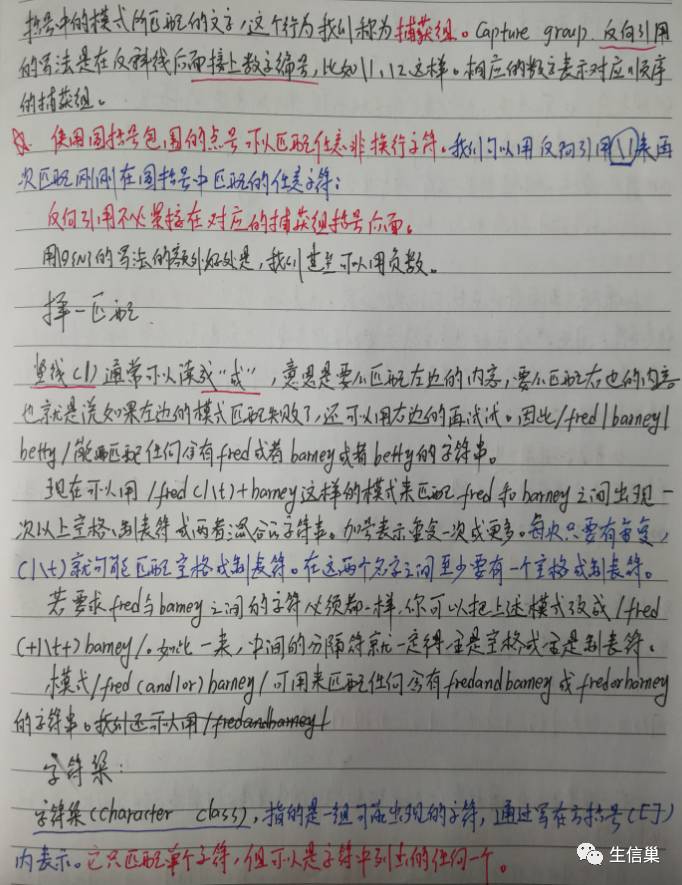 括号中的模式所匹配的文字，这个行为我们称为捕获组。Capture group. 反向引用
的写法是在反斜线后面接上数字编号，比如\1，\2这样。相应的数字表示对应顺序
的捕获组。
使用圆括号包围的点号可以匹配任意非换行字符。我们可以用反向引用\1来再
次匹配刚刚在圆括号中匹配的任意字符：
反向引用不必紧接在对应的捕获组括号后面。
用\g{N}的写法的额外好处是，我们甚至可以用负数。
择一匹配
竖线(|)通常可以读成“或”，意思是要么匹配左边的内容，要么匹配右边的内容
也就是说如果左边的模式匹配失败了，还可以用右边的再试试。因此/fred|barney|
betty/能匹配任何含有fred或者barney或者betty的字符串。
现在可以用/fred(|\t)+barney这样的模式来匹配fred和barney之间出现一
次以上空格、制表符或两者混合的字符串。加号表示重复一次或更多。每次只要有重复，
(|\t)就可能匹配空格或制表符。在这两个名字之间至少要有一个空格或制表符。
若要求fred与barney之间的字符必须都一样，你可以把上述模式改成/fred
(+|\t+)barney/。如此一来，中间的分隔符就一定得全是空格或全是制表符。
模式/fred(and|or)barney/可用来匹配任何含有fredandbarney或fredorbarney
的字符串。我们还可以用/fredandbarney/
字符集：
字符集(character class)，指的是一组可能出现的字符，通过写在方括号([])
内表示。它只匹配单个字符，但可以是字符中列出的任何一个。
生信巢